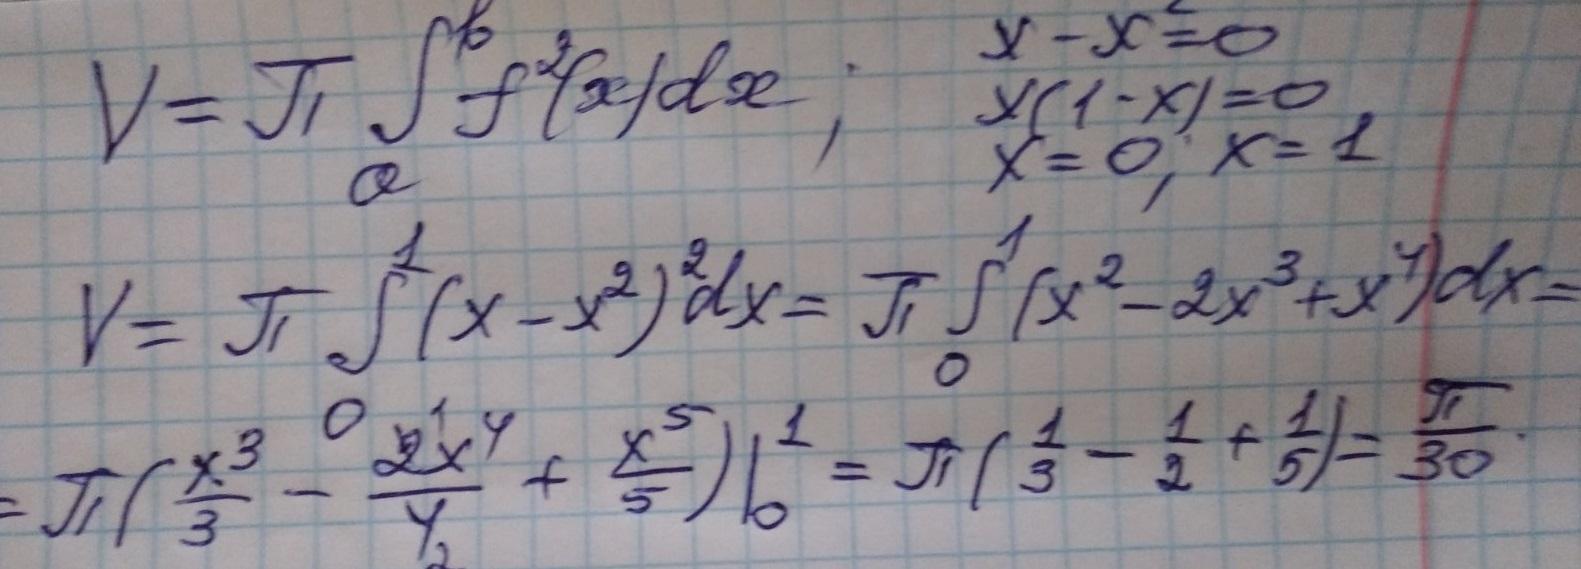 V = π ∫ₐᵇ f²(x)dx ;
x - x² = 0
x(1 - x) = 0
x = 0, x = 1
V = π ∫₀¹ (x - x²)²dx = π ∫₀¹ (x² - 2x³ + x⁴)dx =
= π( x³/3 - 2x⁴/4 + x⁵/5 )|₀¹ = π( 1/3 - 1/2 + 1/5 ) = π/30 .